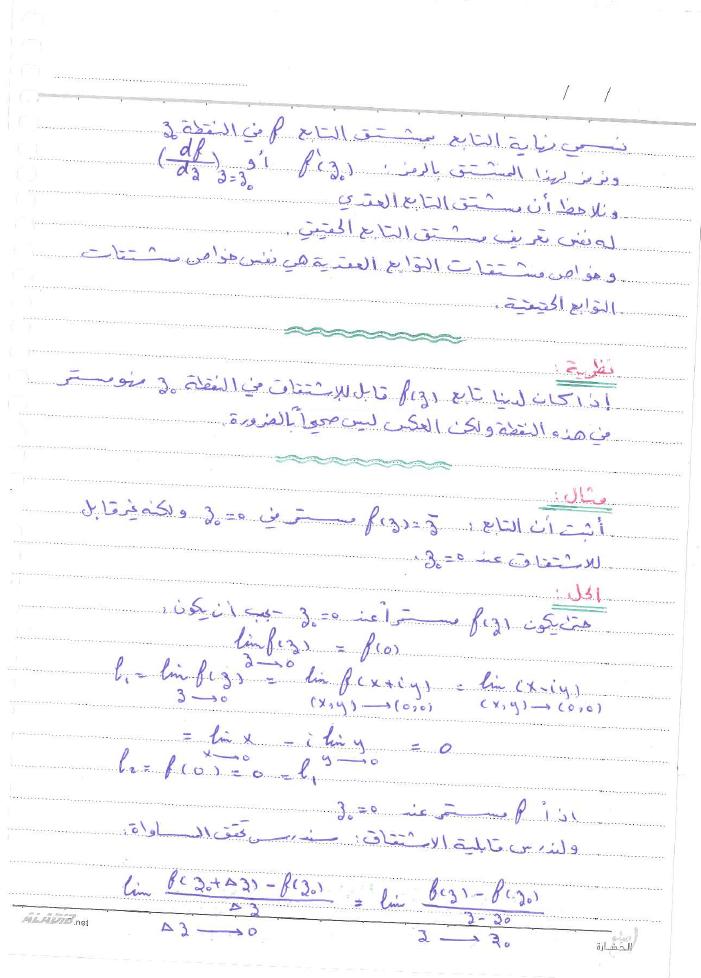 / /
نسمي نهاية التابع بمشتق التابع f في النقطة z₀
ونرمز لهذا المشتق بالرمز : f'(z₀) أو (df/dz)z=z₀
ونلاحظ أن مشتق التابع العقدي
له نفس تعريف مشتق التابع الحقيقي .
وخواص مشتقات التوابع العقدية هي نفس خواص مشتقات
التوابع الحقيقية .
نظرية :
إذا كان لدينا تابع f(z) قابل للإشتقاق في النقطة z₀ فهو مستمر
في هذه النقطة ولكن العكس ليس صحيحاً بالضرورة .
مثال :
أثبت أن التابع : f(z) = z̄ مستمر في z₀ = 0 ولكنه غير قابل
للاشتقاق عند z₀ = 0 .
الحل :
حتى يكون f(z) مستمراً عند z₀ = 0 يجب أن يكون :
lim f(z) = f(0)
z→0
l₁ = lim f(z) = lim f(x+iy) = lim (x-iy)
z→0 (x,y)→(0,0) (x,y)→(0,0)
= lim x - i lim y = 0
x→0 y→0
l₂ = f(0) = 0 = l₁
اذاً f مستمر عند z₀ = 0
ولندرس قابلية الاشتقاق : سندرس تحقق المساواة :
lim f(z₀+Δz) - f(z₀) / Δz = lim f(z) - f(z₀) / z - z₀
Δz → 0 z → z₀
ALAVIO.net
الحضارة